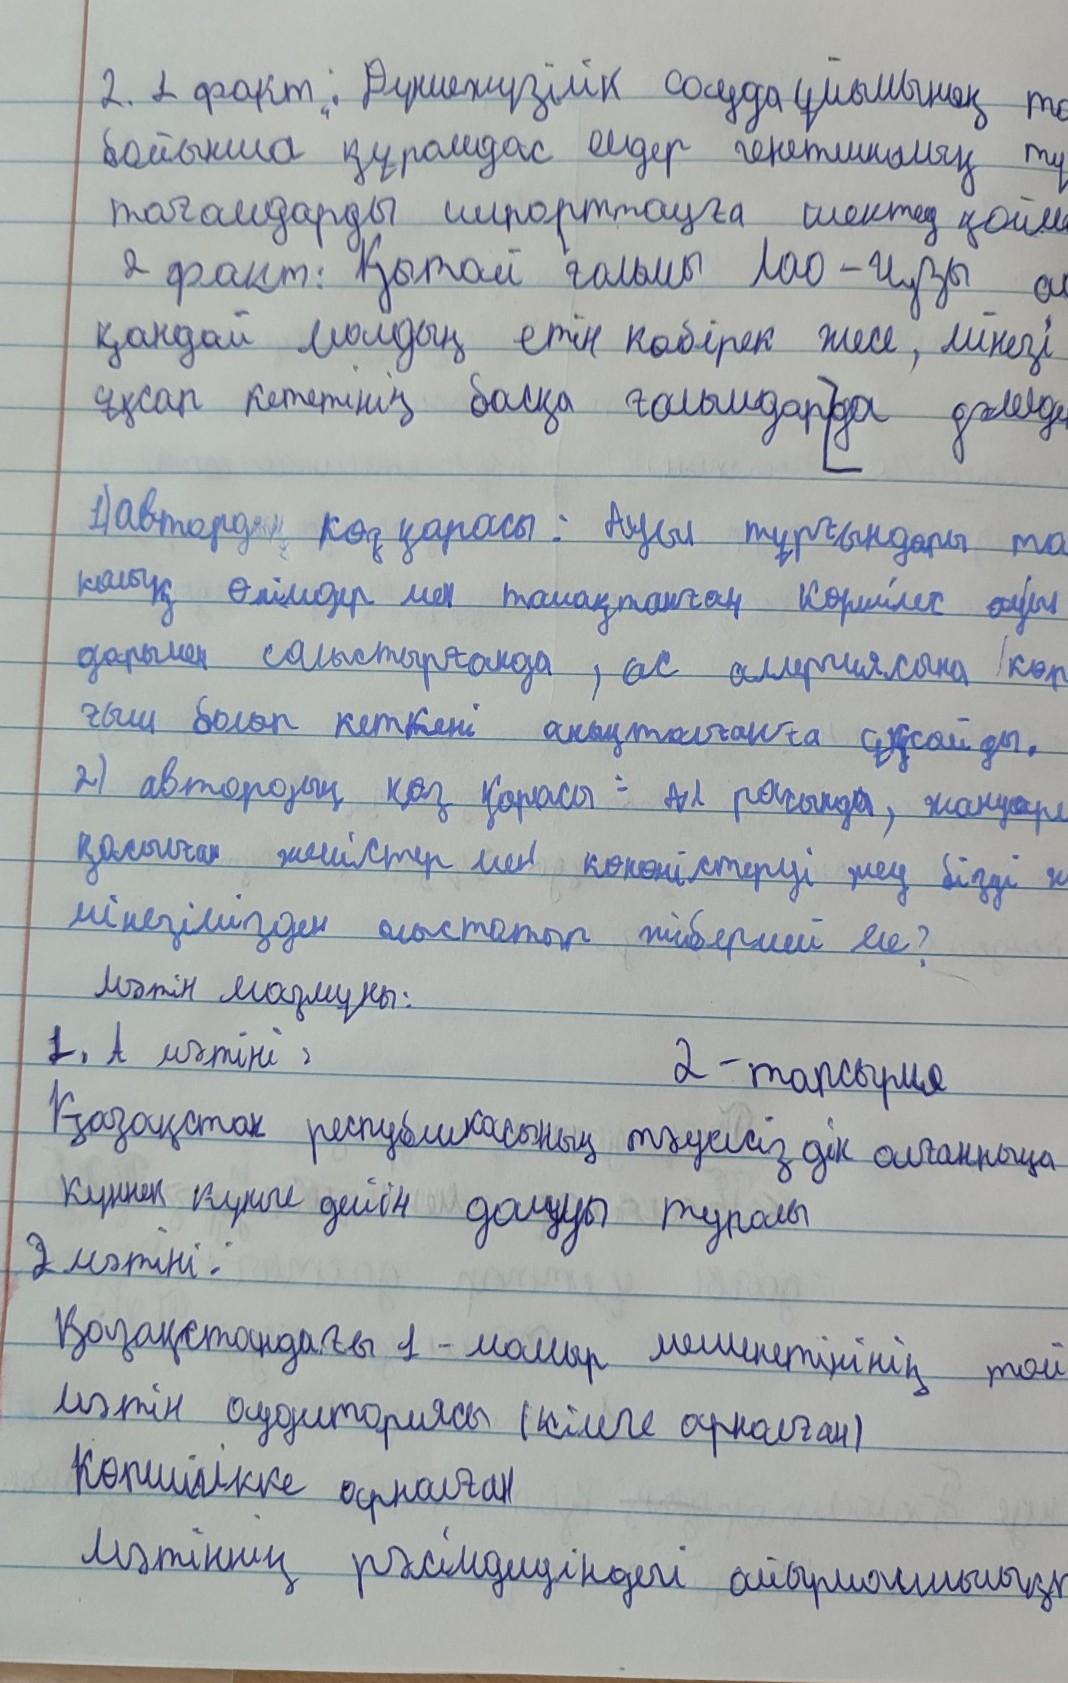 2. 1 факт: Дүниежүзілік сауда ұйымының та
бойынша құрамдас елдер генетикалық тү
тағамдарды импорттауға шектеу қойма
2 факт: Қытай ғалымы Лао-Цузы
қандай малдың етін көбірек жесе, мінезі
ұқсап кететінің басқа ғалымдарда дәлелде
1) автордың көзқарасы: Ауыл тұрғындары та
калық өнімдер мен тамақтанған көршілес ауыл
дарымен салыстырғанда, ас аллергиясына көп
ғыш болып кеткені анықталғанға ұқсайды.
2) автордың көз қарасы: Ал расында, жануарл
қосылған жемістер мен көкөністерді жеу бізді
мінезімізден алыстатып жібермей ме?
Мәтін мазмұны:
1. А мәтіні: 2-тапсырма
Қазақстан республикасының тәуелсіздік алғаннан
күннен күнге дейін дамуы туралы
Ә мәтіні:
Қазақстандағы 1-мамыр мешетінің той
Мәтін аудиториясы (кімге арналған)
Көпшілікке арналған
Мәтіннің рәсімделуіндегі айырмашылық